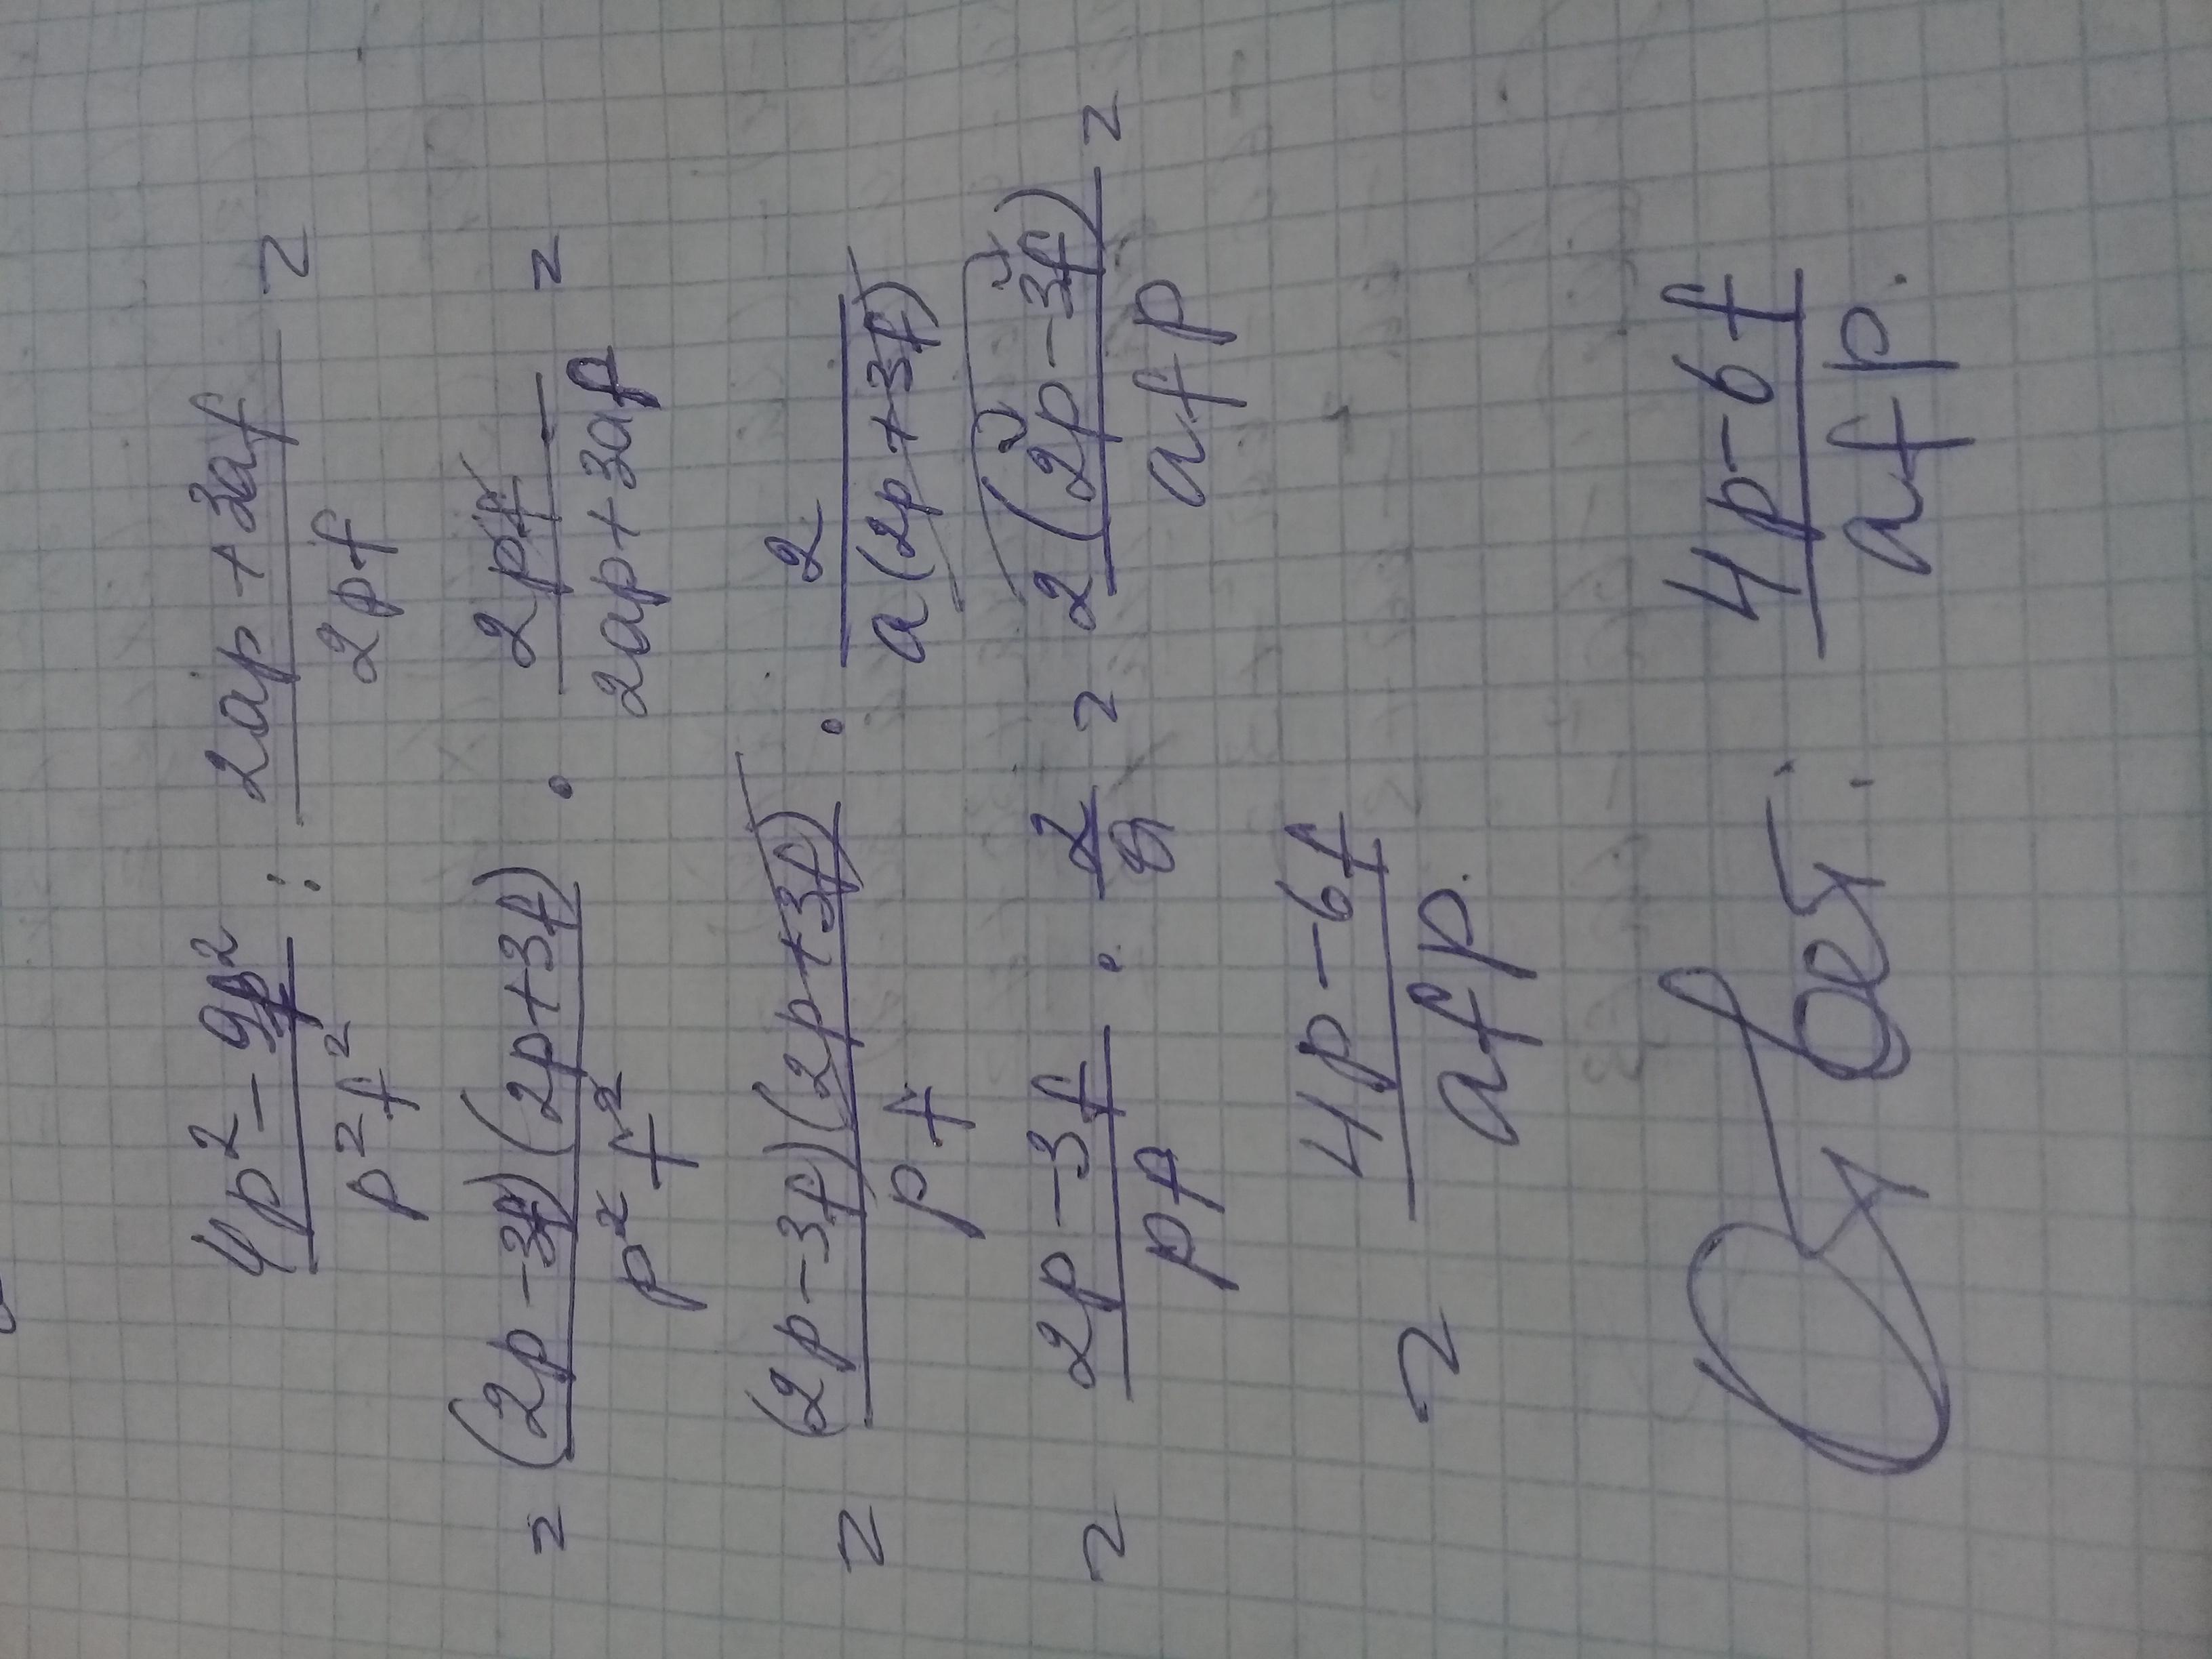 4p² - 9f² / p²f² : 2ap + 3af / 2pf =
= (2p - 3f)(2p + 3f) / p²f² · 2pf / 2ap + 3af =
= (2p - 3f)(2p + 3f) / pf · 2 / a(2p + 3f)
= 2p - 3f / pf · 2 / a = 2(2p - 3f) / afp =
= 4p - 6f / afp.
Ответ: 4p - 6f / afp.